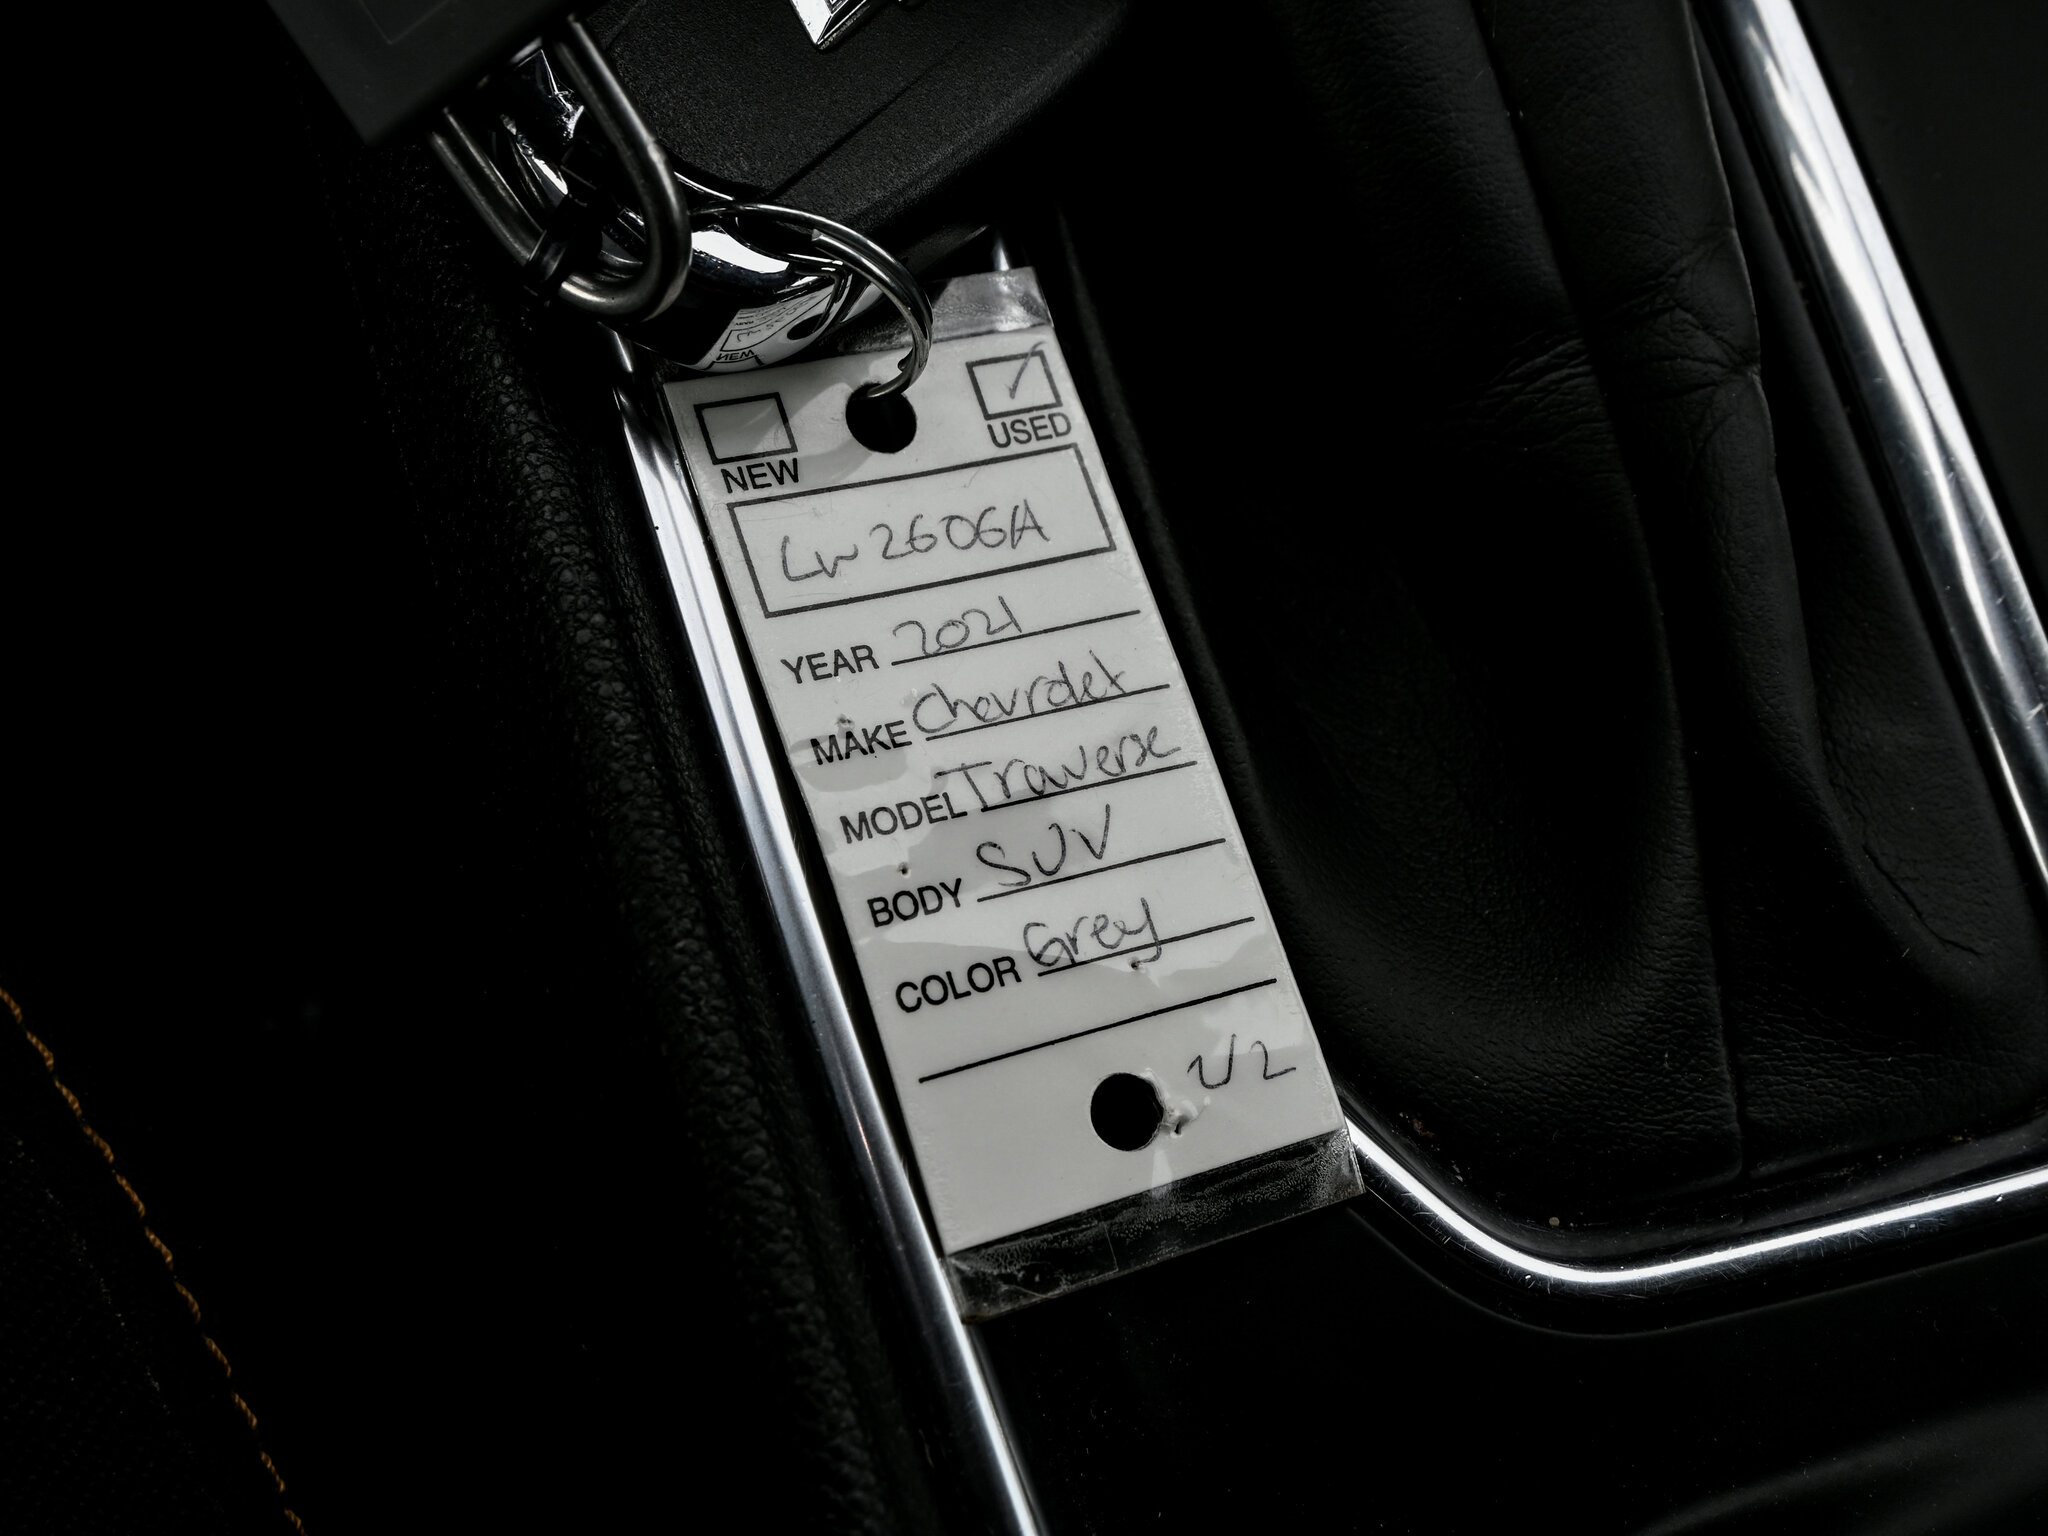 NEW USED
LW2606A
YEAR 2021
MAKE Chevrolet
MODEL Traverse
BODY SUV
COLOR Grey